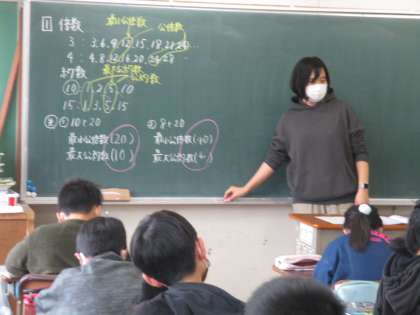 1 倍数 最小公倍数 公倍数
3: 3, 6, 9, 12, 15, 18, 21, 24 …
4: 4, 8, 12, 16, 20, 24, 28
約数 最大公約数 公約数
10: 1, 2, 5, 10
15: 1, 3, 5, 15
① 10と20
最小公倍数(20)
最大公約数(10)
② 8と20
最小公倍数(40)
最大公約数(4)